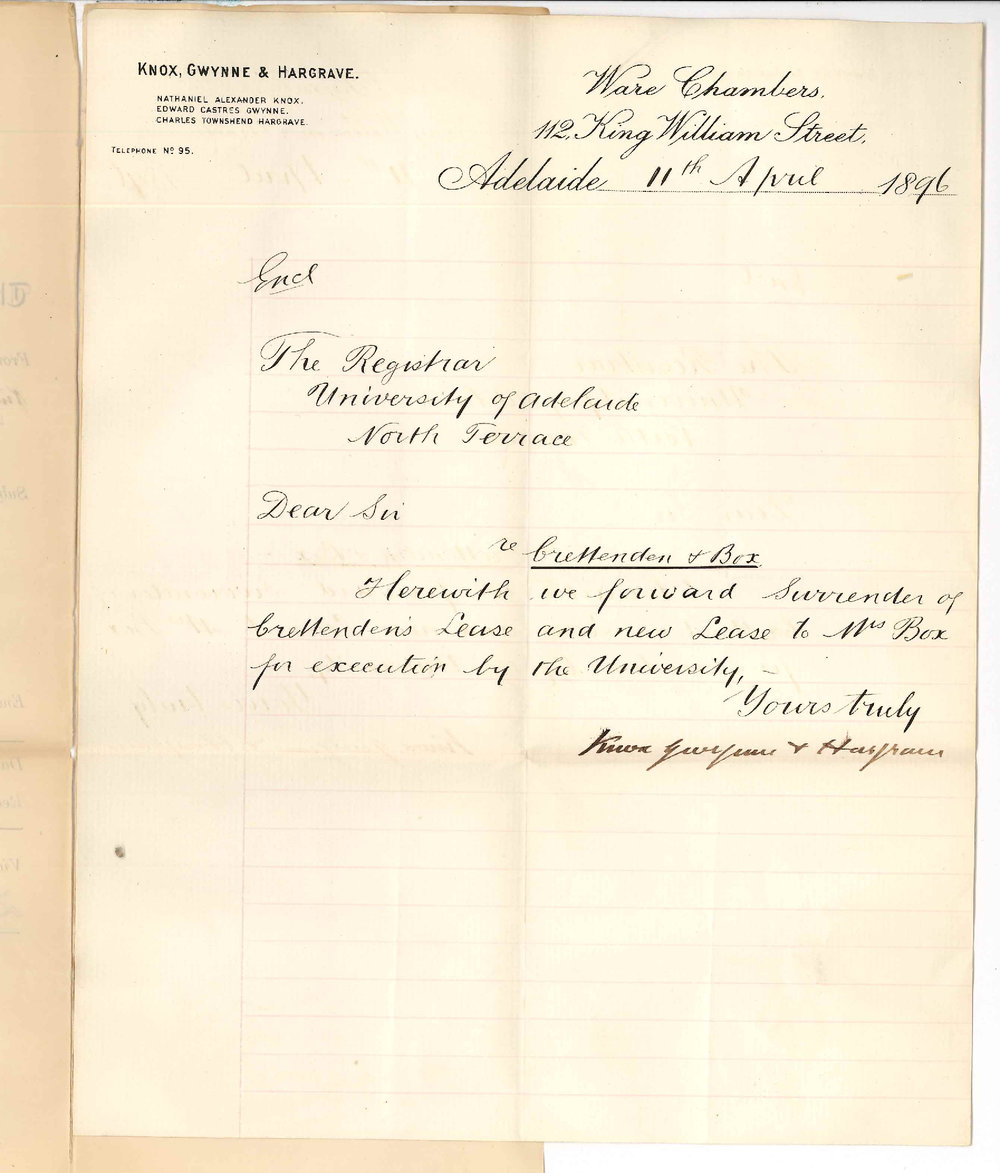 KNOX, GWYNNE & HARGRAVE.
NATHANIEL ALEXANDER KNOX.
EDWARD CASTRES GWYNNE.
CHARLES TOWNSHEND HARGRAVE.
TELEPHONE Nº 95.
Ware Chambers.
112, King William Street,
Adelaide 11th April 1896
Encl
The Registrar
University of Adelaide
North Terrace
Dear Sir
re Crettenden & Box
Herewith we forward Surrender of
Crettenden's Lease and new Lease to Mrs Box
for execution by the University, –
Yours truly
Knox Gwynne & Hargrave